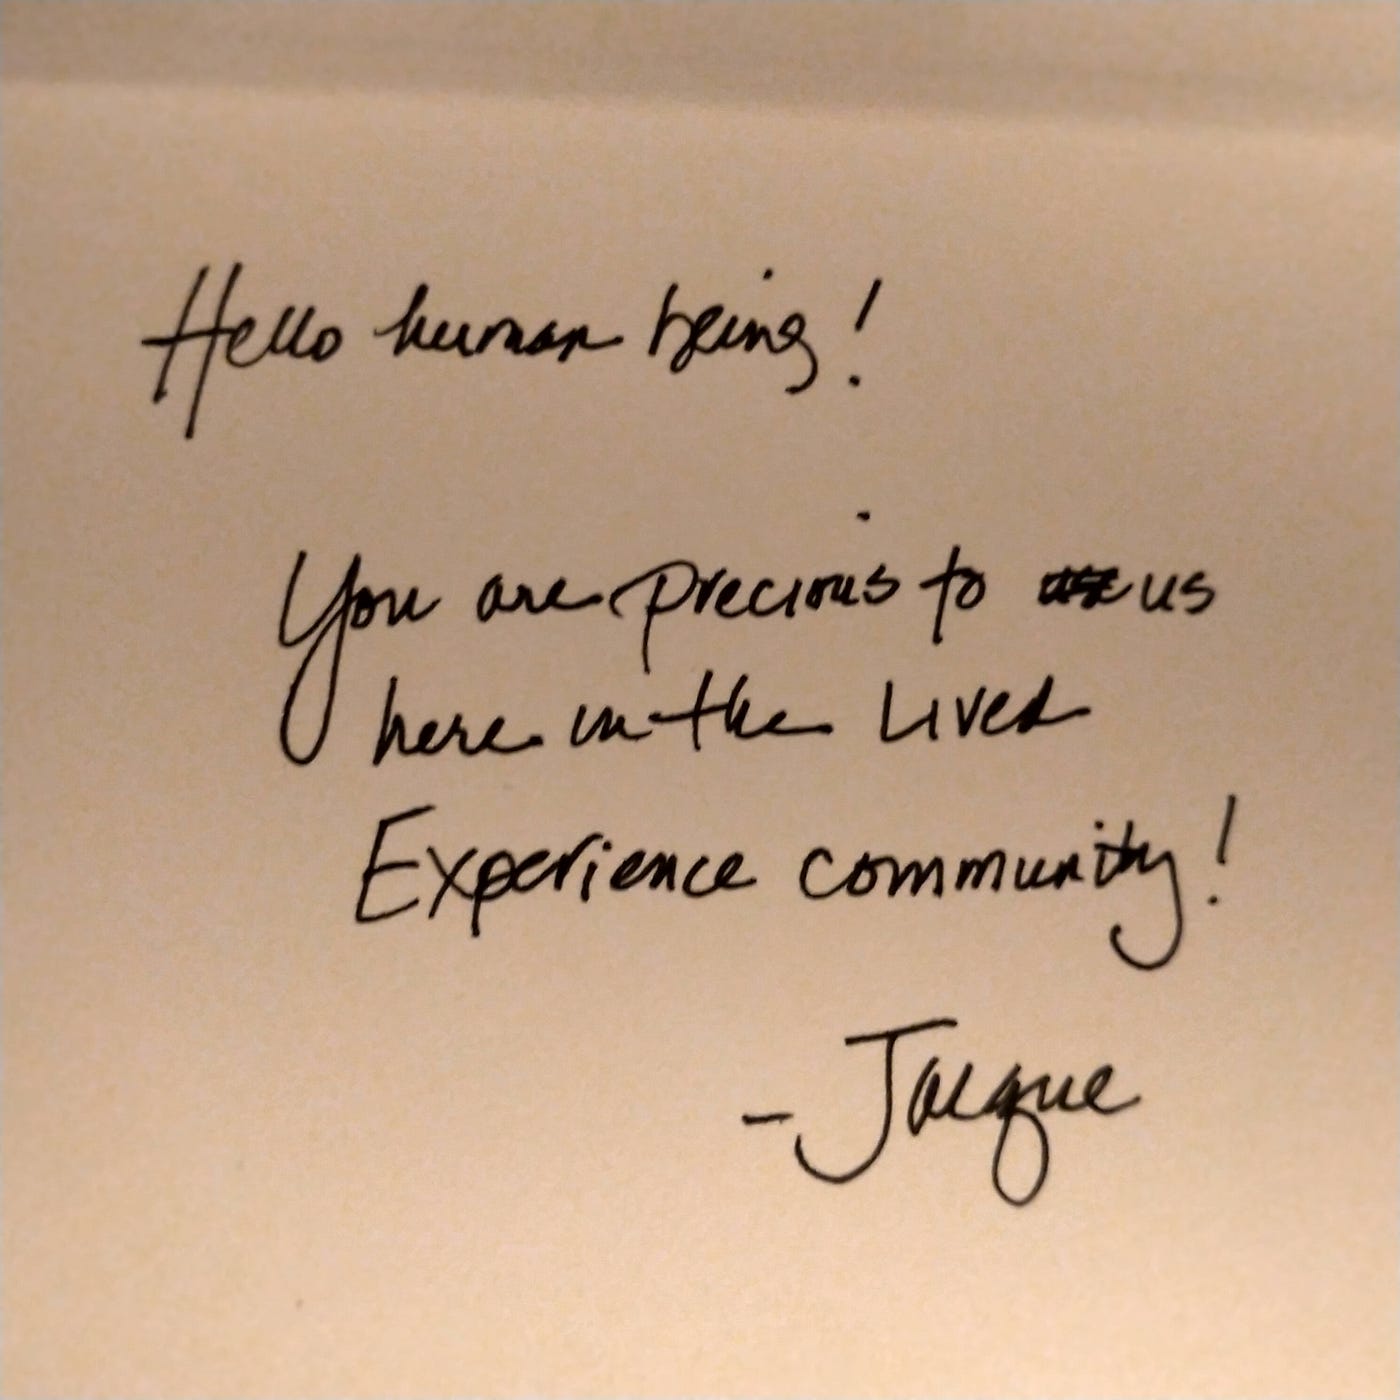 Hello human being!
You are precious to us
here in the Lived
Experience community!
- Jacque